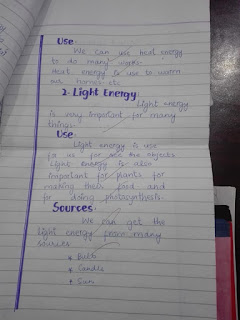 Use.
We can use heat energy
to do many works.
Heat energy is use to warm
our homes etc.
2. Light Energy:
Light energy
is very important for many
things.
Use.
Light energy is use
for us for see the objects
Light energy is also
important for plants for
making their food and
for doing photosynthesis.
Sources.
We can get the
light energy from many
sources
* Bulb
* Candle
* Sun